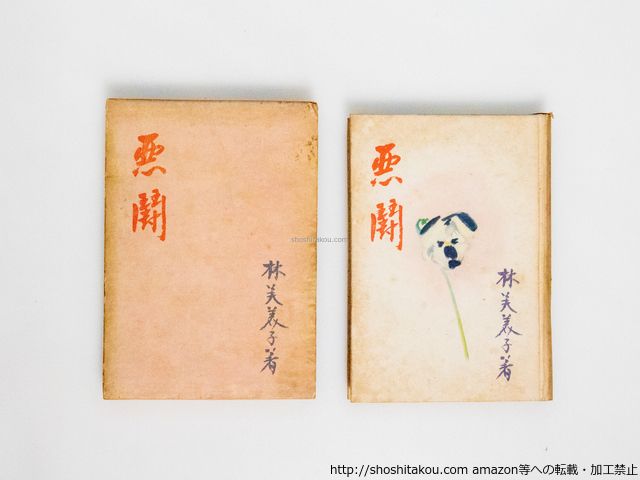 悪
鬪
林芙美子著
shoshitakou.com
悪
鬪
林芙美子著
http://shoshitakou.com amazon等への転載・加工禁止